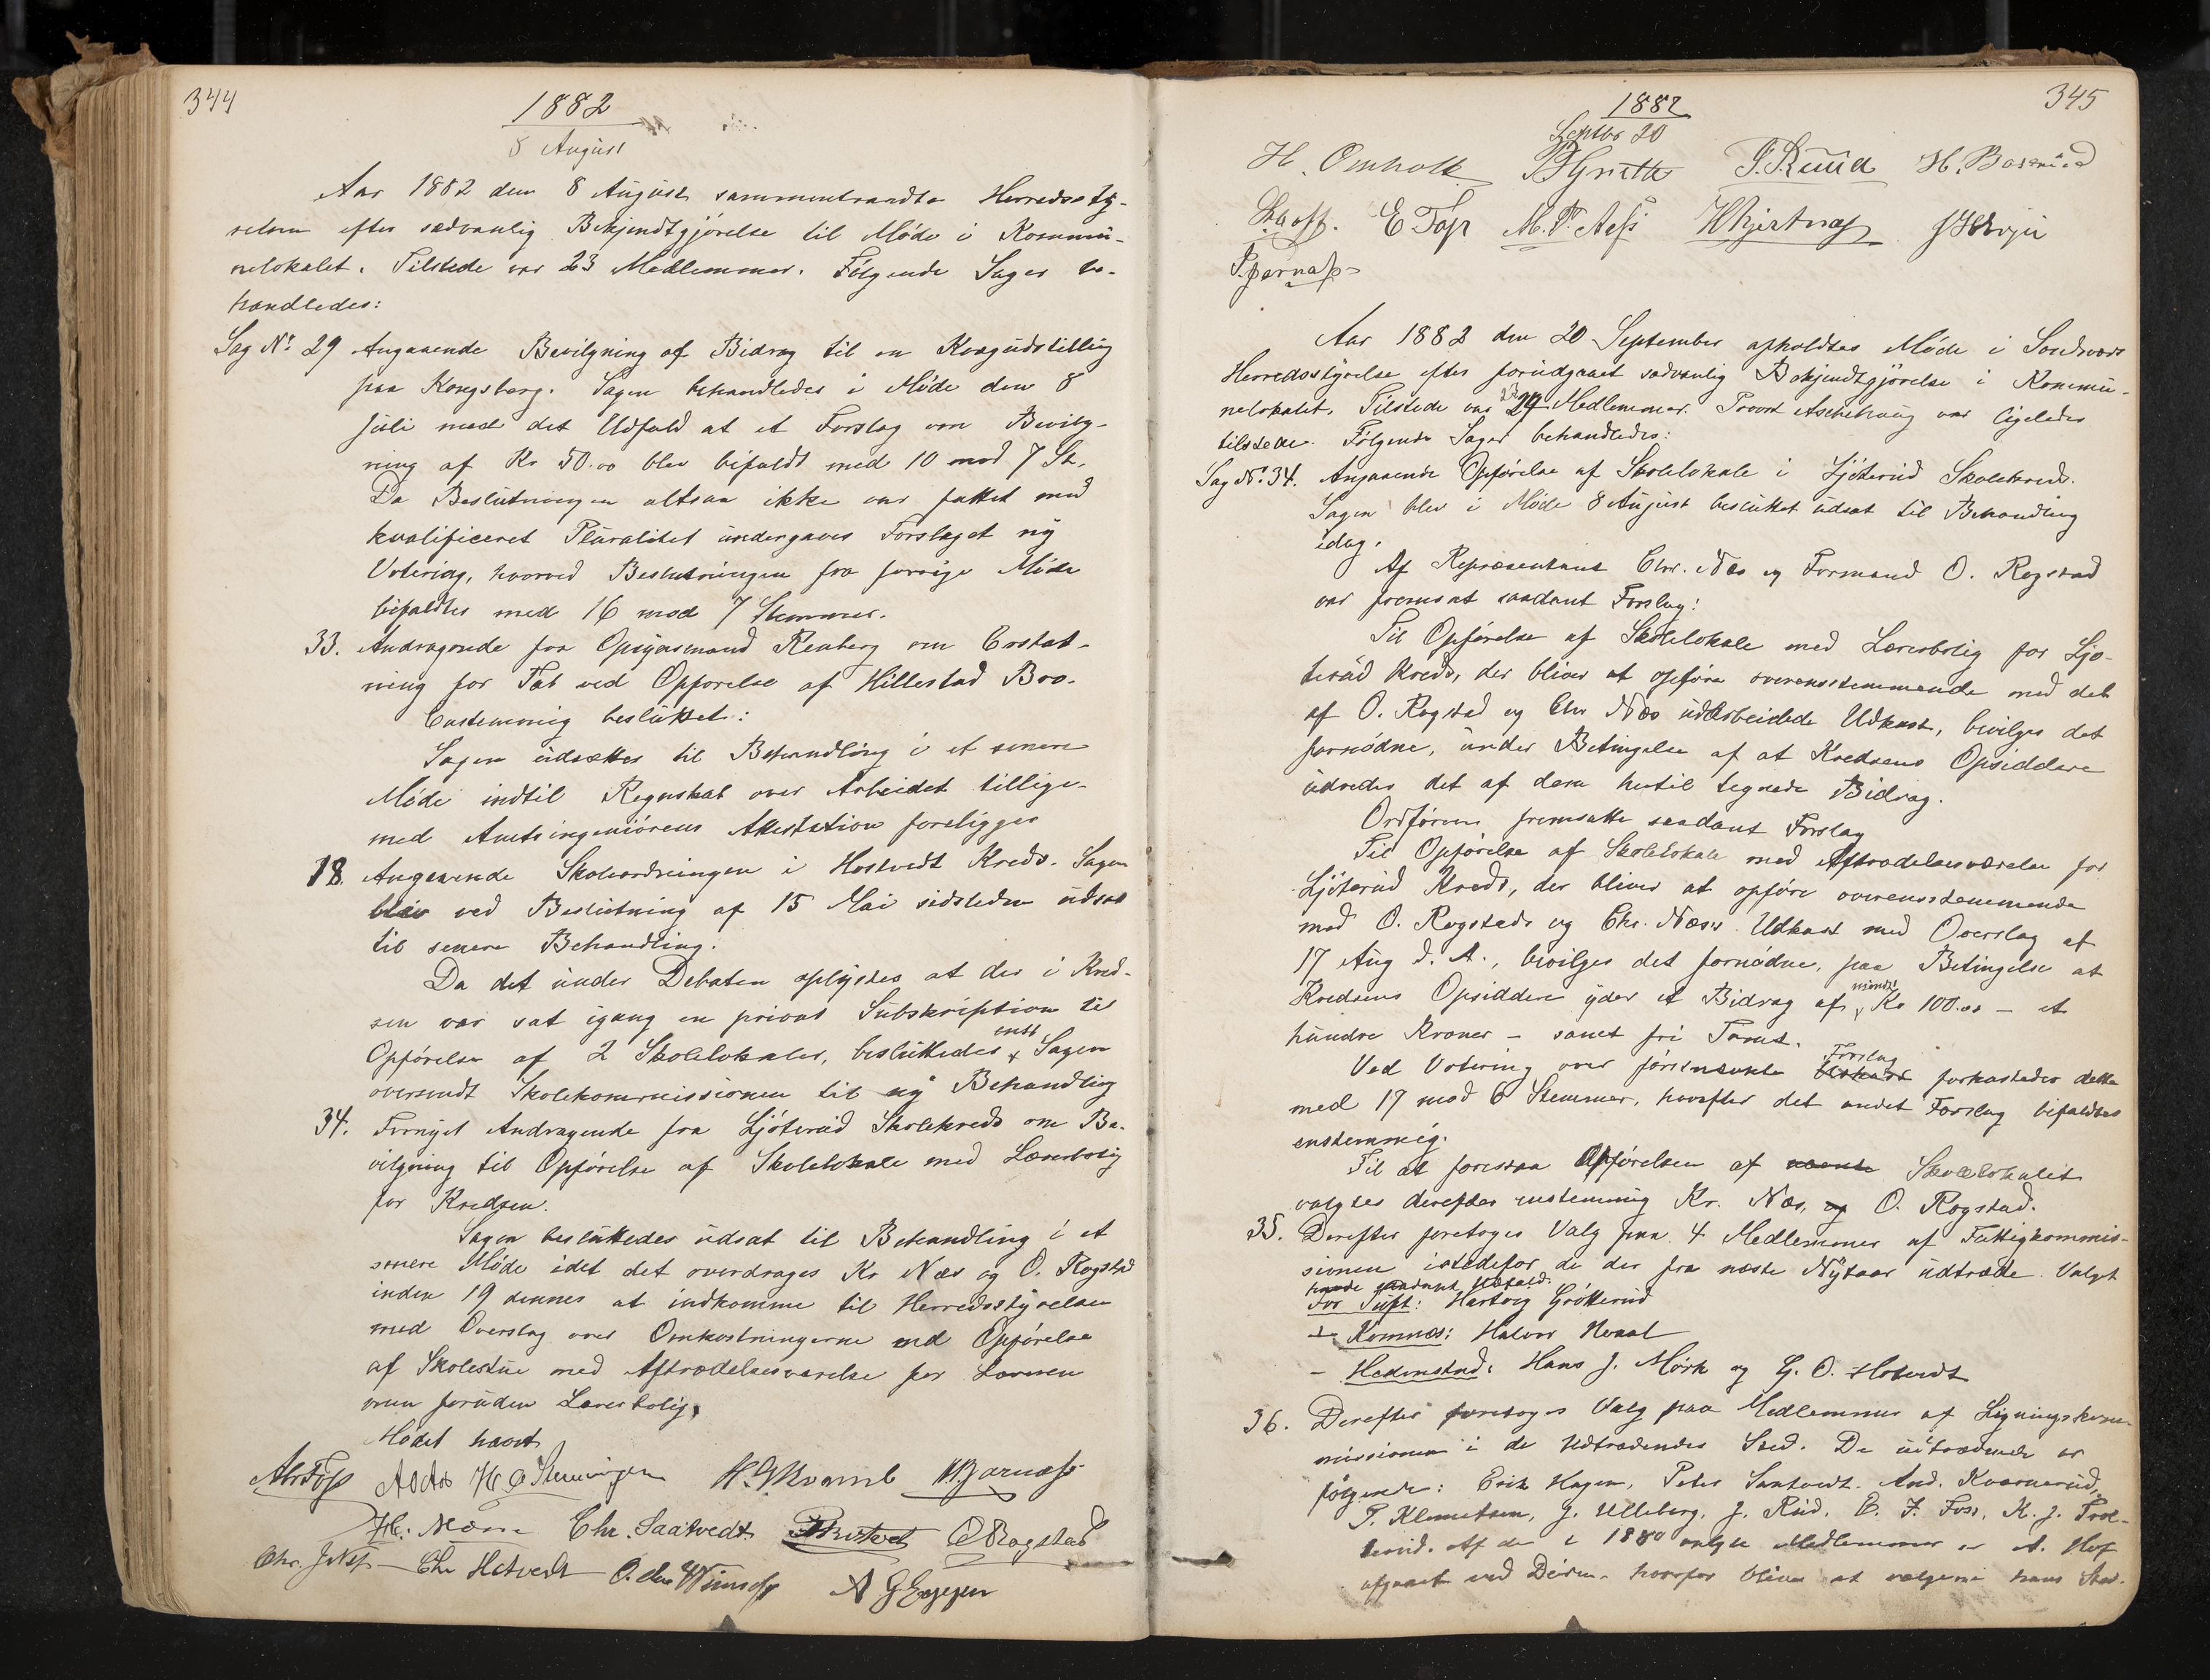 344
1882
8 August
Aar 1882 den 8 August sammentraadte Herredssty-
relsen efter sædvanlig Bekjendtgjörelse til Möde i Kommu-
nelokalet. Tilstede var 23 Medlemmer. Fölgende Sager be-
handledes:
Sag No. 29 Angaaende Bevilgning af Bidrag til en Kvægudstilling
paa Kongsberg. Sagen behandledes i Möde den 8
Juli med det Udfald at et Forslag om Bevilg-
ning af Kr 50.00 blev bifaldt med 10 mod 7 St.
Da Beslutningen altsaa ikke var fattet med
kvalificeret Pluralitet undergaves Forslaget ny
Votering, hvorved Beslutningen fra forrige Möde
bifaldtes med 16 mod 7 Stemmer.
33. Andragende fra Opsynsmand Renberg om Erstat-
ning for Tab ved Opförelse af Hillestad Bro.
Enstemmig besluttet:
Sagen udsættes til Behandling i et senere
Möde indtil Regnskab over Arbeidet tillige-
med Amtsingeniörens Attestation foreligger
18. Angaaende Skoleordningen i Hostvedt Kreds. Sagen
blev ved Beslutning af 15 Mai sidstleden udsat
til senere Behandling.
Da det under Debatten oplystes at der i Kred-
sen var sat igang en privat Subskription til
Opförelse af 2 Skolelokaler, besluttedes enst. Sagen
oversendt Skolekommissionen til ny Behandling
34. Fornyet Andragende fra Ljöterud Skolekreds om Be-
vilgning til Opförelse af Skolelokale med Lærerbolig
for Kredsen.
Sagen besluttedes udsat til Behandling i et
senere Möde idet det overdrages Kr Næs og O. Rogstad
inden 19 dennes at indkomme til Herredsstyrelsen
med Overslag over Omkostningerne ved Opförelse
af Skolestue med Aftrædelsesværelse for Læreren
men foruden Lærerbolig.
Mödet hævet
Abr Föss H. G. Kvamb
Chr. Saatvedt O Rogstad
Chr. J Næss Chr Hotvedt

345
1882
Septbr 20
H. Omholt J. Ruud
E Fop M. P. Næss
Aar 1882 den 20 September afholdtes Möde i Sandsværs
Herredsstyrelse efter forudgaaet sædvanlig Bekjendtgjörelse i Kommu-
nelokalet. Tilstede var 24 Medlemmer. Provst Aschehoug var ligeledes
tilstede. Fölgende Sager behandledes:
Sag No. 34. Angaaende Opförelse af Skolelokale i Ljöterud Skolekreds.
Sagen blev i Möde 8 August besluttet udsat til Behandling
idag.
Af Repræsentant Chr. Næs og Formand O. Rogstad
var fremsat saadant Forslag:
Til Opförelse af Skolelokale med Lærerbolig for Ljö-
terud Kreds, der bliver at opföre overensstemmende med det
af O. Rogstad og Chr Næs udarbeidede Udkast, bevilges det
fornödne, under Betingelse af at Kredsens Opsiddere
udreder det af dem hertil tegnede Bidrag.
Ordföreren fremsatte saadant Forslag
Til Opförelse af Skolelokale med Aftrædelsesværelse for
Ljöterud Kreds, der bliver at opföre overensstemmende
med O. Rogstads og Chr. Næss Udkast med Overslag af
17 Aug d. A., bevilges det fornödne, paa Betingelse at
Kredsens Opsiddere yder et Bidrag af mindst Kr 100.00 – et
hundre Kroner – samt fri Tomt.
Ved Votering over förstnævnte Forslag forkastedes dette
med 17 mod 6 Stemmer, hvorefter det andet Forslag bifaldtes
enstemmig.
Til at forestaa Opförelsen af nævnte Skolelokale
valgtes derefter enstemmig Kr. Næs, og O. Rogstad.
35. Derefter foretoges Valg paa 4 Medlemmer af Fattigkommis-
sionen istedefor de der fra næste Nytaar udtræde. Valget
havde saadant Udfald:
For Tuft: Hartvig Grötterud
– Komnes: Halvor Hvaal
– Hedenstad: Hans J. Mörk og G. O. Hotvedt
36. Derefter foretoges Valg paa Medlemmer af Ligningskom-
missionen i de Udtrædendes Sted. De udtrædende er
fölgende: Erik Hagen, Peter Saatvedt, And. Kværnerud,
P. Klemetsen, J. Ulleberg, J. Rud, E. F. Foss, K. J. Trol-
lerud. Af de i 1880 valgte Medlemmer er A. Hof
afgaaet ved Döden, hvorfor bliver at vælge i hans Sted.